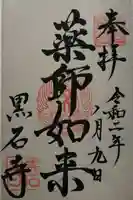 奉拝
令和二年
八月九日
薬師如来
黒石寺